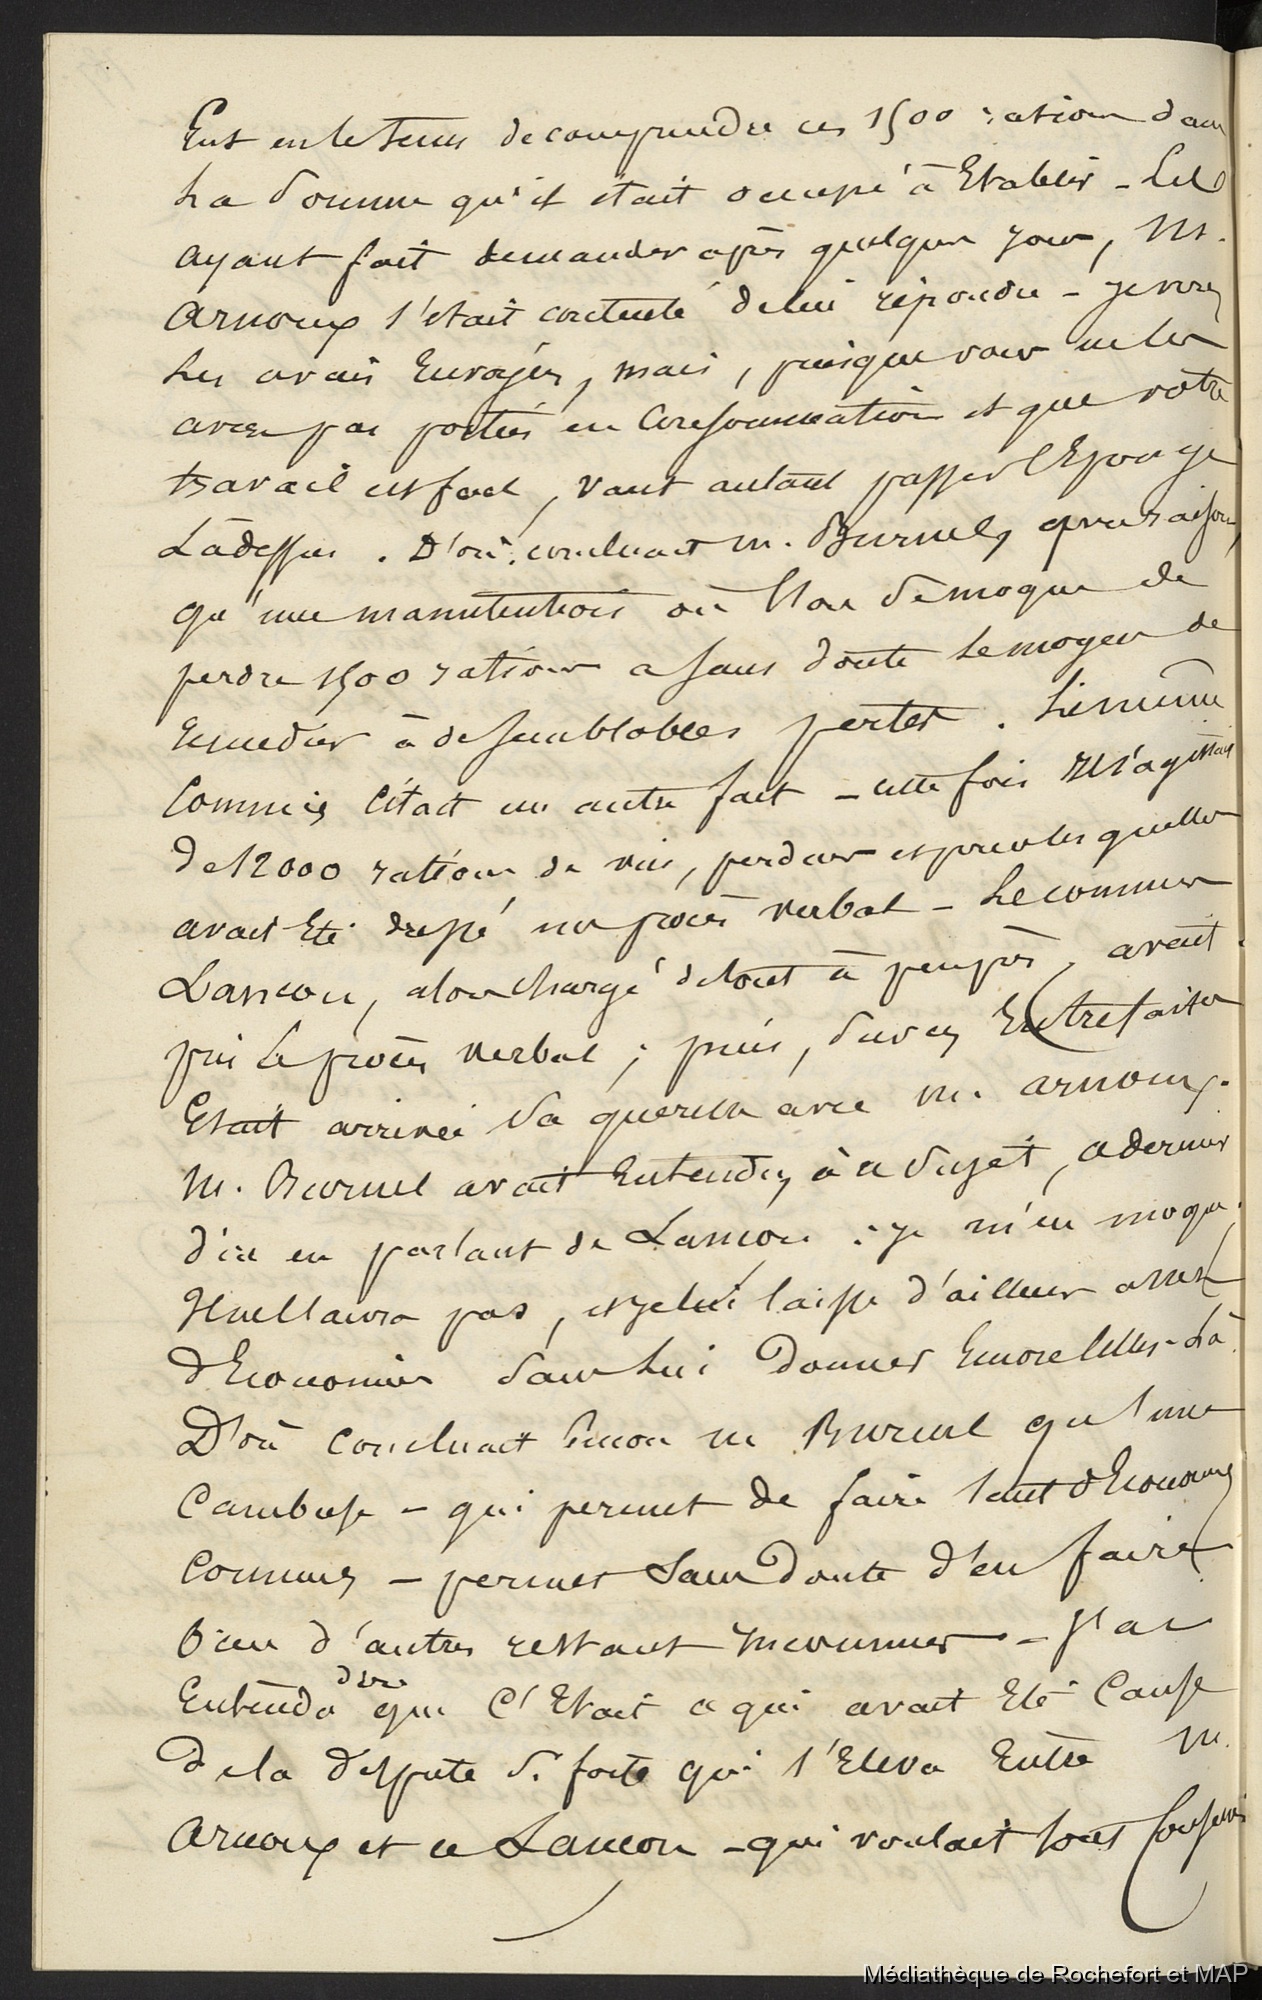 Eut en le tems de comprendre ces 1500 rations dans
La Somme qu'il était occupé à Etablir - Les
ayant fait demander après quelques jours, M.
Arnoux s'était contenté de lui répondre - je vous
Les avais Envoyés, mais, puisque vous ne les
avez pas portées en Consommation et que votre
travail est fait, vaut autant passer l'Eponge
Làdessus. D'où concluait M. Burnel, avec raison,
qu'une manutention où l'on Se moque de
perdre 1500 rations a sans doute Le moyen de
Remedier à de semblables pertes. Le même
Commis Citait un autre fait - cette fois Il s'agissait
De 12000 rations de vin, perdues et pour lesquelles
avait Eté dressé un procès verbal - Le commis
Lanson, alors chargé de tout à peu près, avait
pris Le procès verbal ; puis, Sur ces Entrefaites
Etait arrivée Sa querelle avec M. Arnoux.
M. Burnel avait Entendu, à ce Sujet, ce dernier
dire en parlant de Lanson : je m'en moque,
Il ne l'aura pas, et je lui laisse d'ailleurs assez
d'Economies Sans Lui Donner Encore Celles-Là.
D'où concluait Encore M Burnel qu'une
Cambuse - qui permet de faire tant d'Economies
Connues - permet Sans Doute d'en faire
bien d'autres restant Inconnues - J'ai
Entendu dire que C'Etait ce qui avait Eté Cause
De la Dispute Si forte qui s'Eleva Entre M.
Arnoux et ce Lanson - qui voulait tout Conserver
Médiathèque de Rochefort et MAP